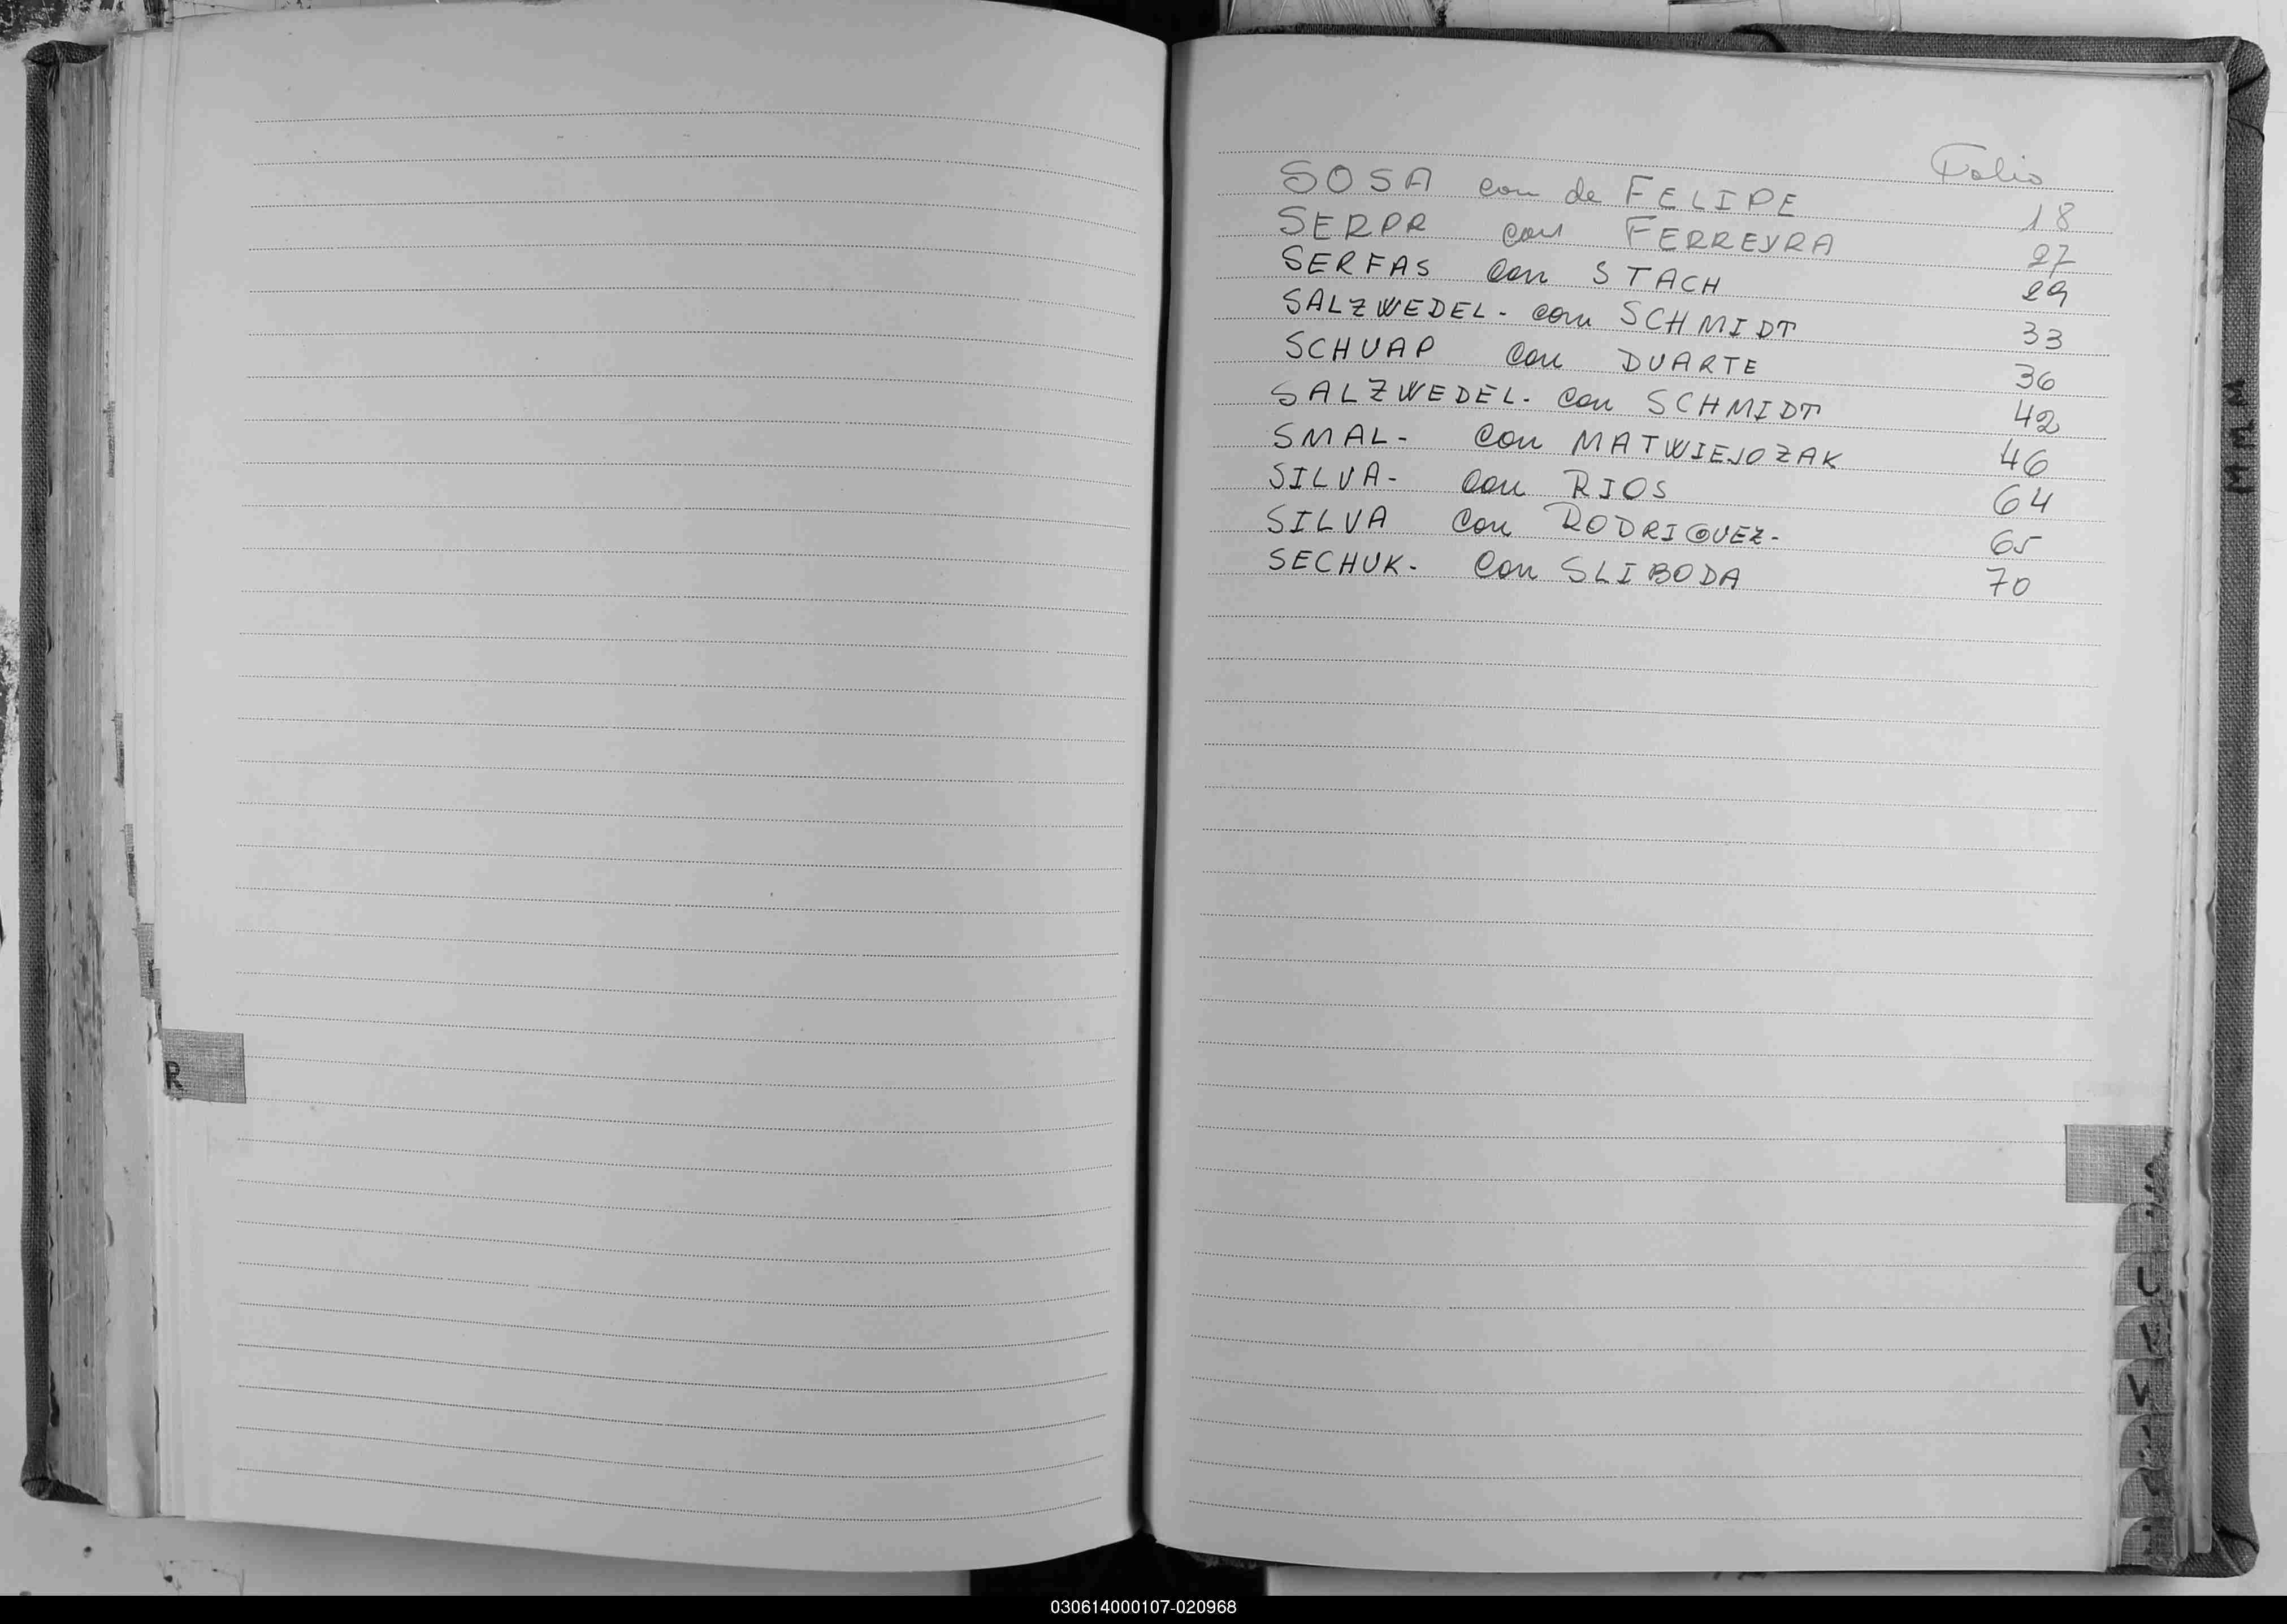 Folio
SOSA con de FELIPE 18
SERPR con FERREYRA 27
SERFAS con STACH 29
SALZWEDEL - con SCHMIDT 33
SCHUAP con DUARTE 36
SALZWEDEL - con SCHMIDT 42
SMAL - con MATWIEJOZAK 46
SILVA - con RIOS 64
SILVA con RODRIGUEZ - 65
SECHUK - con SLIBODA 70
R
M M M
030614000107-020968